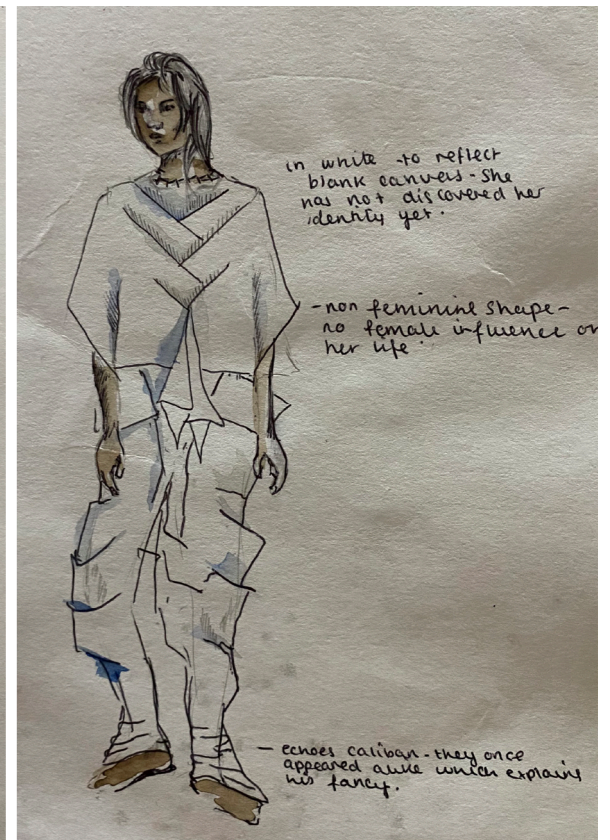 in white - to reflect
blank canvas - she
has not discovered her
identity yet.
- non feminine shape -
no female influence on
her life.
- echoes caliban - they once
appeared alike which explains
his fancy.